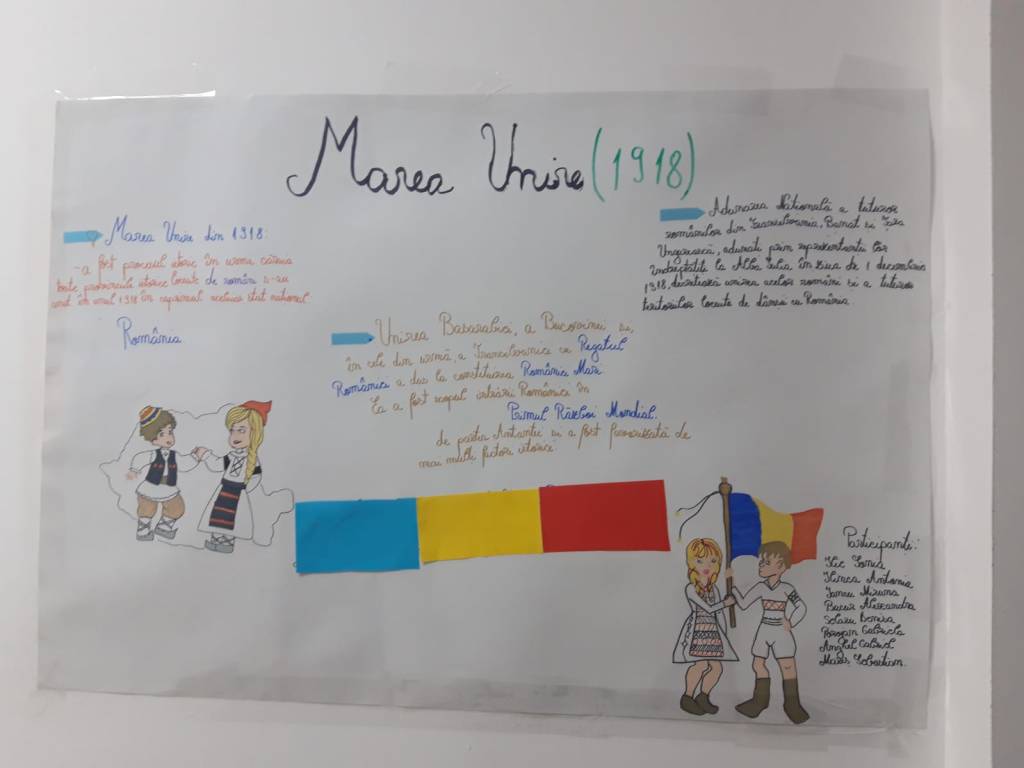 Marea Unire (1918)
Marea Unire din 1918:
-a fost procesul istoric în urma căruia
toate provinciile istorice locuite de români s-au
unit în anul 1918 în cuprinsul aceluiași stat național
România
Adunarea Națională a tuturor
românilor din Transilvania, Banat și Țara
Ungurească, adunați prin reprezentanții lor
îndreptățiți la Alba Iulia în ziua de 1 decembrie
1918, decretează unirea acelor români și a tuturor
teritoriilor locuite de dânșii cu România.
Unirea Basarabiei, a Bucovinei și,
în cele din urmă, a Transilvaniei cu Regatul
României a dus la constituirea României Mari.
Ea a fost scopul intrării României în
Primul Război Mondial.
de partea Antantei și a fost favorizată de
mai mulți factori istorici.
Participanți:
Ilie Sonia
Ilinca Antonia
Iancu Miruna
Alexandra
Denisa
Gabriela
Anghel Gabriel
Sebastian